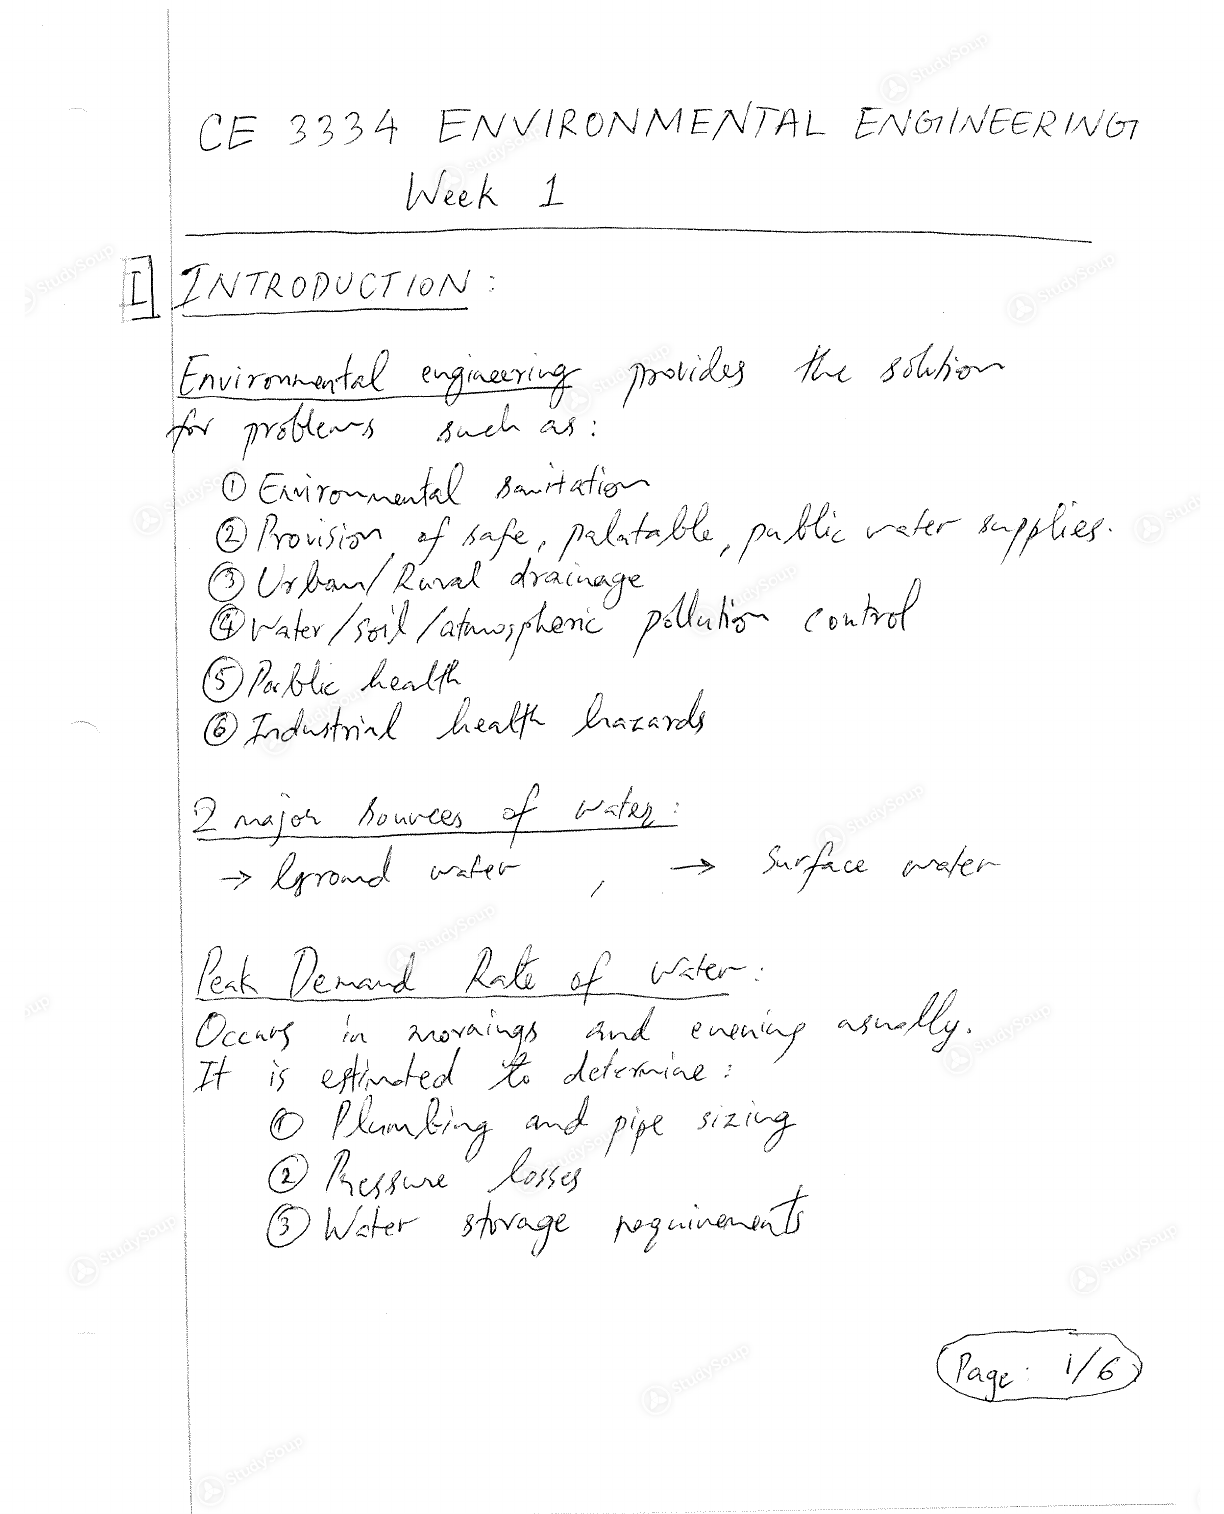 CE 3334 ENVIRONMENTAL ENGINEERING
Week 1
I INTRODUCTION:
Environmental engineering provides the solution
for problems such as:
① Environmental sanitation
② Provision of safe, palatable, public water supplies.
③ Urban/Rural drainage
④ Water/soil/atmospheric pollution control
⑤ Public health
⑥ Industrial health hazards
2 major sources of water:
→ Ground water, → Surface water
Peak Demand Rate of Water:
Occurs in mornings and evening usually.
It is estimated to determine:
① Plumbing and pipe sizing
② Pressure losses
③ Water storage requirements
Page: 1/6
StudySoup